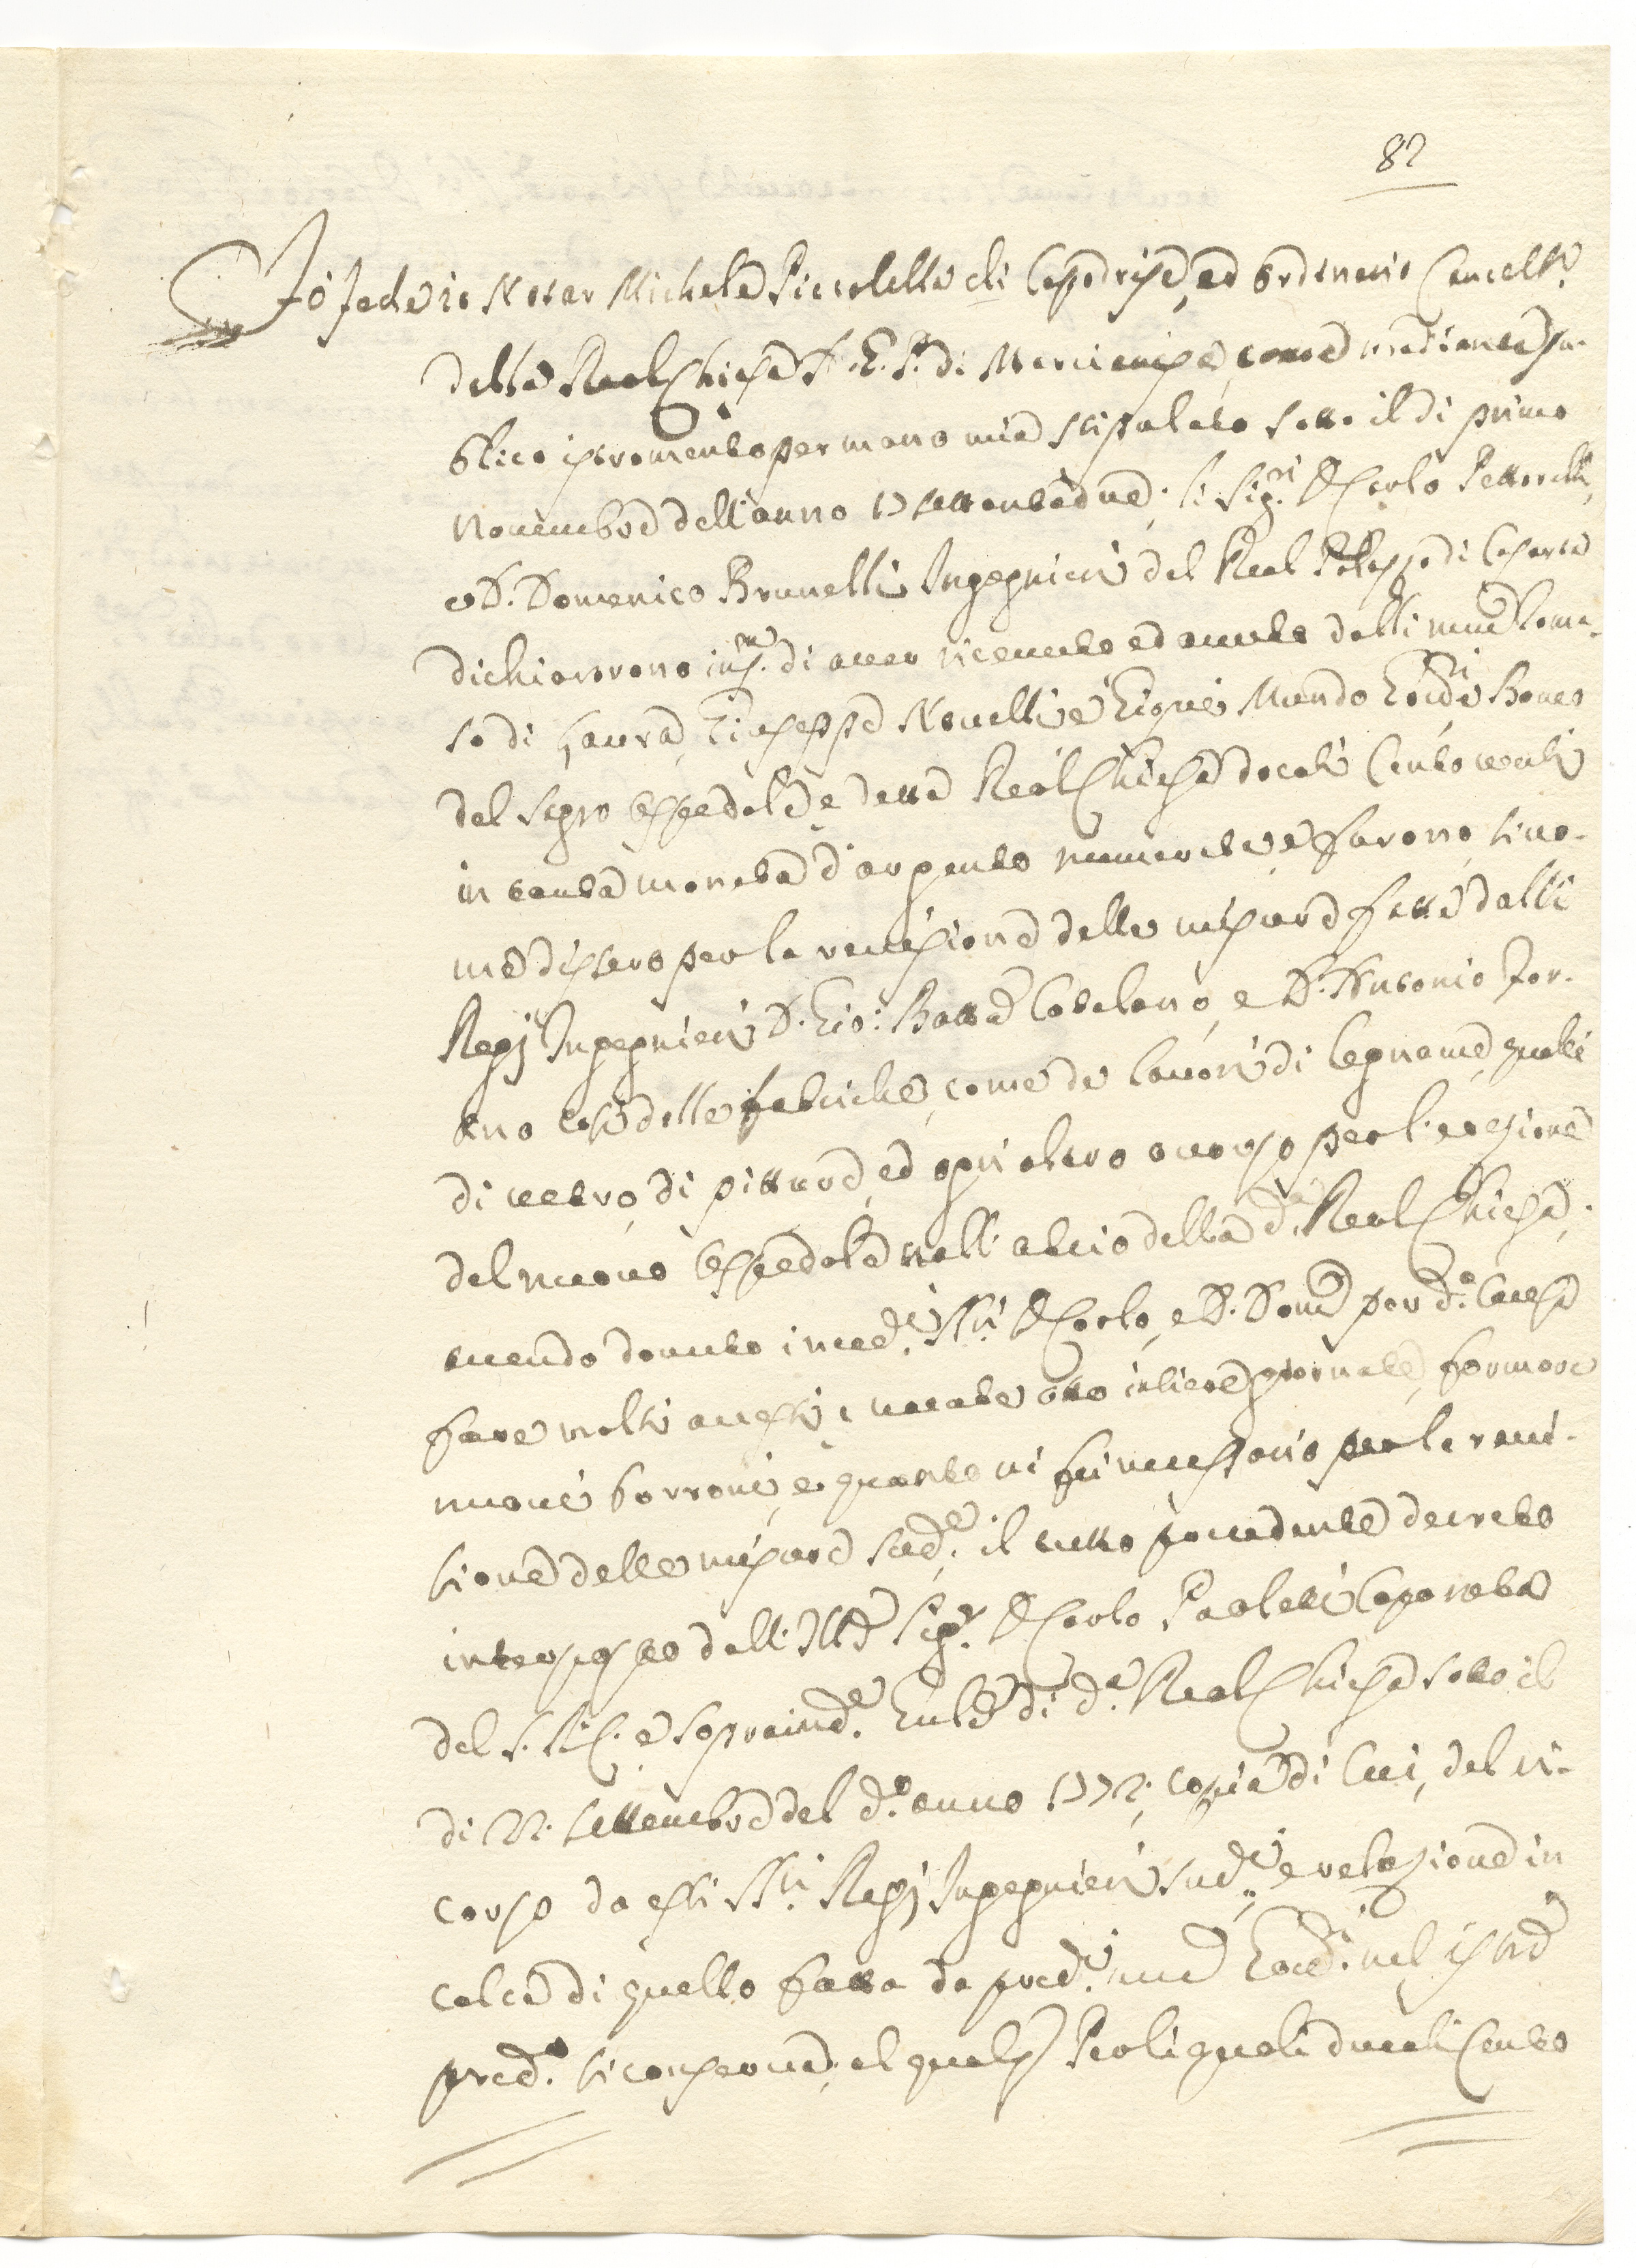 82
Fò fede io Notar Michele Piccolella di Capodrise, ed ordinario Cancell.e
della Real Chiesa A. G. P. di Marcianise, come mediante pu-
blico istromento per mano mia stipulato sotto il dì primo
Novembre dell'anno 17settantadue, li Sig.ri D. Carlo Pattorelli,
e D. Domenico Brunelli Ingegnieri del Real Palazzo di Caserta
dichiararono di aver ricevuto ed avuto dalli Toma-
so di Laura, Giuseppe Novelli e Mundo Gov.di
del Sagro Ospedale e detta Real Chiesa docati Cento venti
in tanta moneta d'argento numerati, e furono, sico-
me dissero per la revisione delle misure fatte dalli
Regj Ingegnieri D. Gio: Batta Catalano, e D. Antonio For-
così delle fabriche, come de lavori di legname,
di vetro, di pitture, ed ogni altro occorso per l'erezione
del nuovo Ospedale nell'atrio della d.a Real Chiesa,
avendo dovuto i med.i SS.ri D. Carlo, e D. Dom.co per d.a causa
fare molti accessi, vacate otto intiere giornate, formare
nuovi borroni, e quanto vi fù necessario per la revi-
sione delle misure sud.e il tutto precedente decreto
interposto dall'Ill.e Sig.r D. Carlo Paoletti Caporota
del S. R. C. e sopraind.e Gnle di d.a Real Chiesa sotto il
dì 22. Settembre del d.o anno 1772; copia di cui, del ri-
corso da essi SS.ri Regj Ingegnieri sud.i e relazione in
calce di quello fatta da pred.i Gov.di nel istr.o
pred.o si conserva; al quale Per li quali ducati Cento